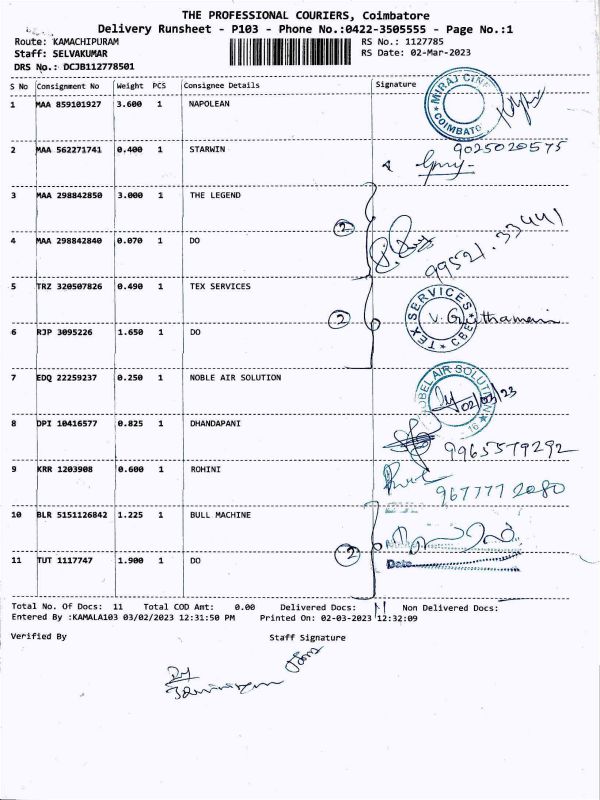 THE PROFESSIONAL COURIERS, Coimbatore
Delivery Runsheet - P103 - Phone No.:0422-3505555 - Page No.:1
Route: KAMACHIPURAM RS No.: 1127785
Staff: SELVAKUMAR RS Date: 02-Mar-2023
DRS No.: DCJB112778501
S No Consignment No Weight PCS Consignee Details Signature
1 MAA 859101927 3.600 1 NAPOLEAN
MIRAJ CINE
COIMBATO
2 MAA 562271741 0.400 1 STARWIN 9025020575
3 MAA 298842850 3.000 1 THE LEGEND
2
4 MAA 298842840 0.070 1 DO 99521.33441
5 TRZ 320507826 0.490 1 TEX SERVICES
2 TEX SERVICES CBE
6 RJP 3095226 1.650 1 DO
7 EDQ 22259237 0.250 1 NOBLE AIR SOLUTION
NOBEL AIR SOLUTION
02/03/23
8 DPI 10416577 0.825 1 DHANDAPANI
9965579292
9 KRR 1203908 0.600 1 ROHINI
9677772080
10 BLR 5151126842 1.225 1 BULL MACHINE
2
11 TUT 1117747 1.900 1 DO Date
Total No. Of Docs: 11 Total COD Amt: 0.00 Delivered Docs: 11 Non Delivered Docs:
Entered By :KAMALA103 03/02/2023 12:31:50 PM Printed On: 02-03-2023 12:32:09
Verified By Staff Signature